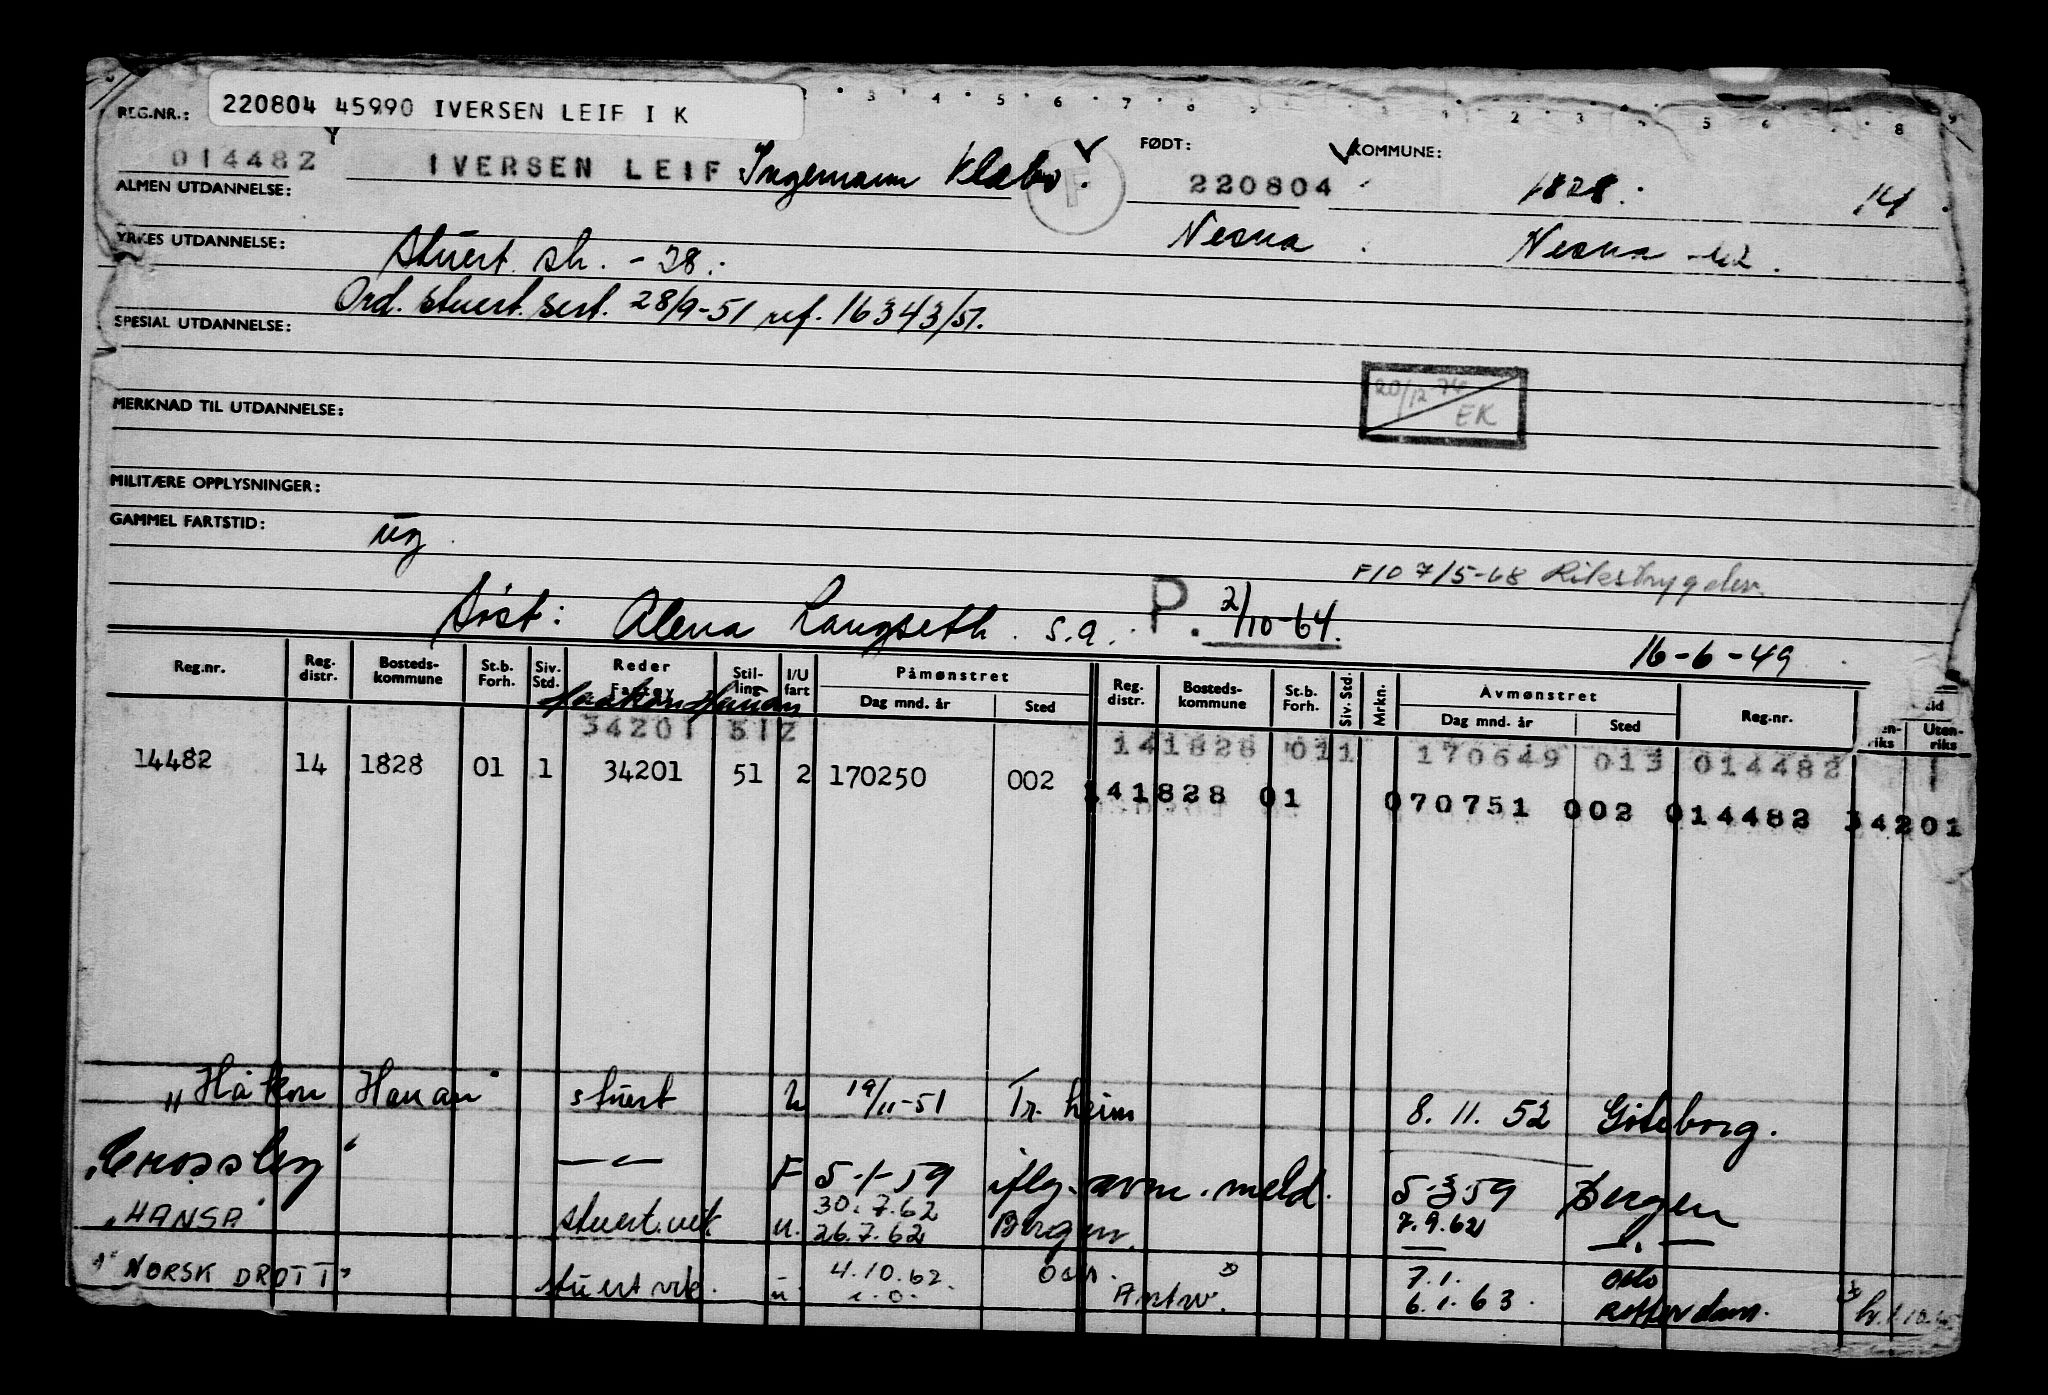 220804 45990 IVERSEN LEIF I K
REG.NR.:
014482 IVERSEN LEIF Ingemann Klæbo.
FØDT: 220804
KOMMUNE: 1828. 14
ALMEN UTDANNELSE:
Nesna Nesna -42.
YRKES UTDANNELSE: Stuert sk. - 38.
Ord. stuert. sert. 28/9-51 ref. 16343/51.
SPESIAL UTDANNELSE:
20/12-74 EK
MERKNAD TIL UTDANNELSE:
MILITÆRE OPPLYSNINGER:
GAMMEL FARTSTID: ug
F10 7/5-68 Rikstrygden
Søst: Alena Langseth. s.a. P. 2/10-64.
16-6-49
Reg.nr. Reg. distr. Bosteds-kommune St.b. Forh. Siv. Std. Reder Fartøy Stil-ling I/U fart Påmønstret Dag mnd. år Sted Reg. distr. Bosteds-kommune St.b. Forh. Siv. Std. Mrkn. Avmønstret Dag mnd. år Sted Reg.nr. Uten-riks
Haakon Hauan
34201 512 141828 011 170649 013 014482
14482 14 1828 01 1 34201 51 2 170250 002 141828 01 070751 002 014482 34201
"Håkon Hauan" stuert u 19/11-51 Tr.heim 8. 11. 52 Göteborg.
"Crossley" F 5-1-59 iflg. avm. meld. 5-3 59 Bergen
"HANSA" stuert.vik u. 30.7.62 26.7.62 Bergen. 7.9.62
"NORSK DROTT" stuert vik. u 4.10.62. Antw. 7.1. 6.1.63. Oslo Rotterdam.